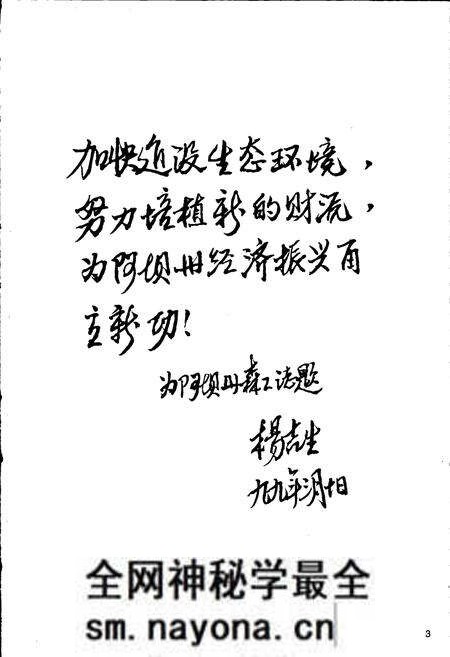 加快建设生态环境，
努力培植新的财流，
为阿坝州经济振兴再
立新功！
为阿坝州森工志题
杨吉生
九九年三月十日
全网神秘学最全
sm.nayona.cn
3